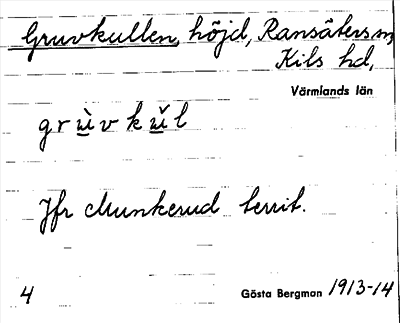 Gruvkullen, höjd, Ransäters sn,
Kils hd,
Värmlands län
grùvkŭl
Jfr Munkerud territ.
4
Gösta Bergman 1913-14